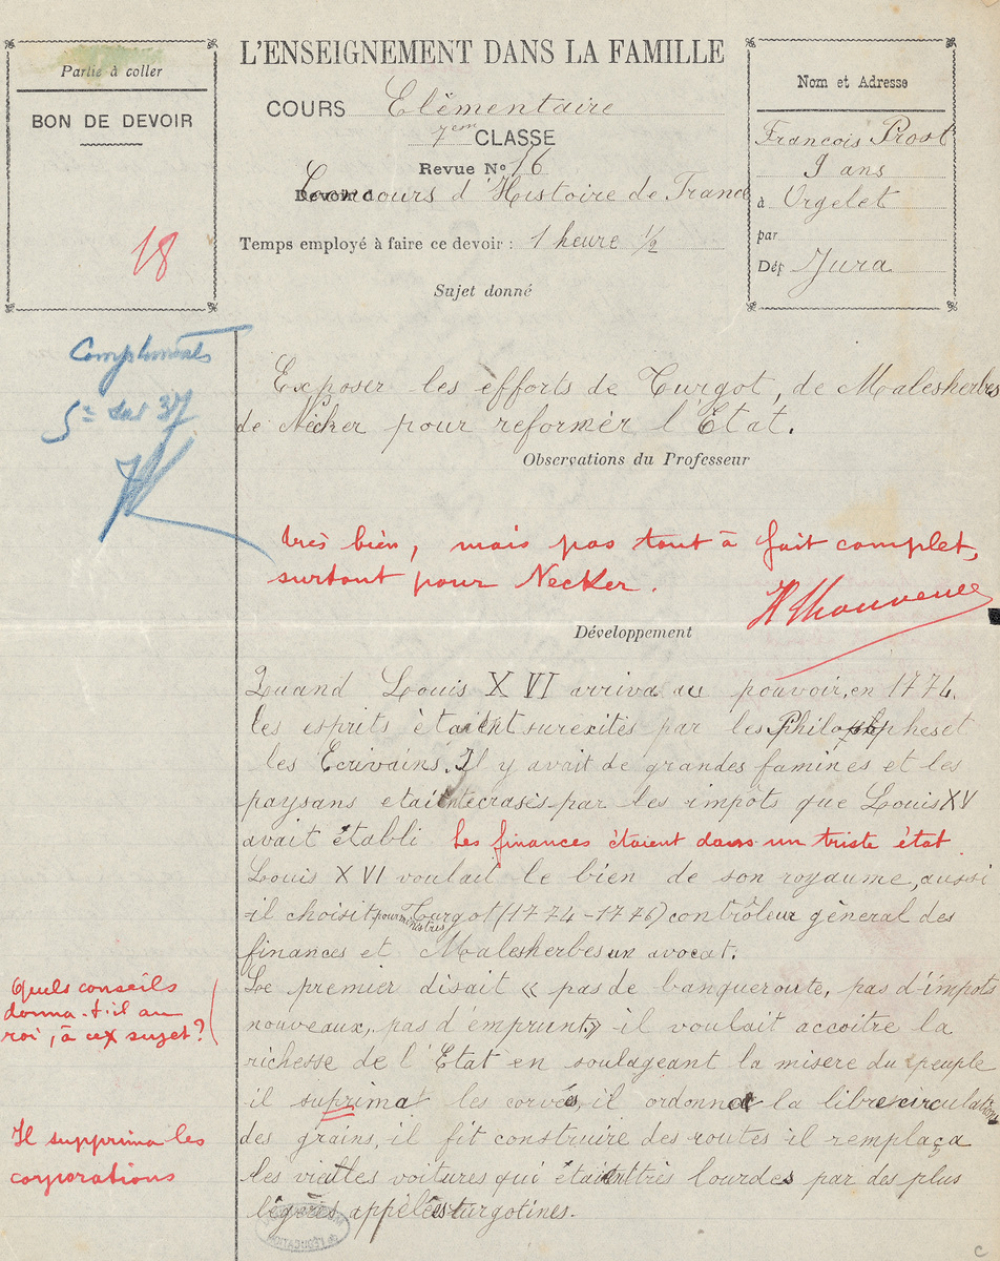 Partie à coller
BON DE DEVOIR
18
L'ENSEIGNEMENT DANS LA FAMILLE
COURS Elémentaire
7em CLASSE
Revue N° 16
Concours d'Histoire de France
Temps employé à faire ce devoir : 1 heure 1/2
Nom et Adresse
François Prost
9 ans
à Orgelet
par
Dép Jura
Sujet donné
Compliments
5e sur 37
Exposer les efforts de Turgot, de Malesherbes
de Necker pour reformer l'État.
Observations du Professeur
très bien, mais pas tout à fait complet,
surtout pour Necker.
Développement
Quand Louis XVI arriva au pouvoir, en 1774.
les esprits étaient surexités par les Philosophes et
les Ecrivains. Il y avait de grandes famines et les
paysans etaient ecrasés par les impôts que Louis XV
avait établi Les finances étaient dans un triste état
Louis XVI voulait le bien de son royaume, aussi
il choisit pour ministres Turgot (1774-1776) contrôleur géneral des
finances et Malesherbes un avocat.
Le premier disait « pas de banqueroute, pas d'impots
nouveaux, pas d'emprunt » il voulait accoitre la
richesse de l'Etat en soulageant la misere du peuple
il suprima les corvés, il ordonna la libre circulation
des grains, il fit construire des routes il remplaça
les vieilles voitures qui étaient très lourdes par des plus
légères appelées turgotines.
Quels conseils
donna-t-il au
roi, à ce sujet ?
Il supprima les
corporations